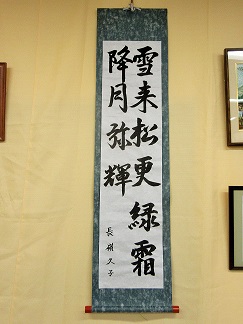 雪来松更緑霜
降月弥輝
長嶺久子